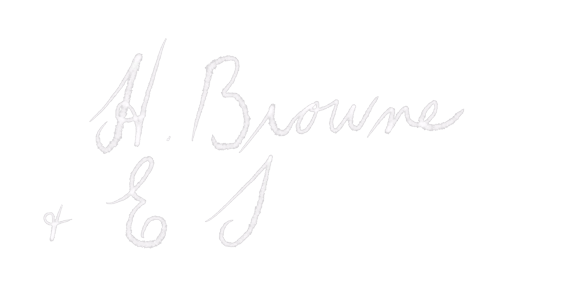 H. Browne
& E S